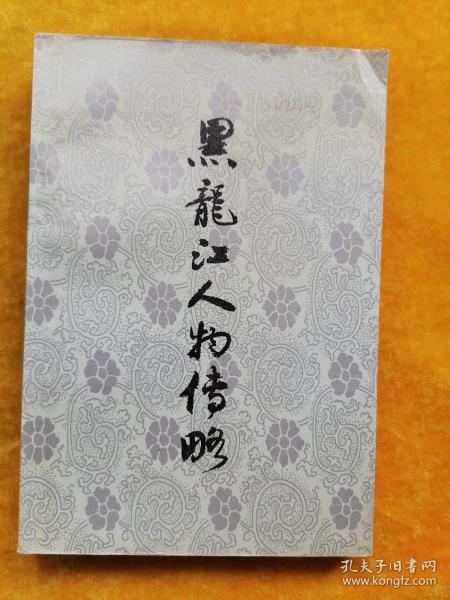 黑龍江人物传略
孔夫子旧书网
www.kongfz.com